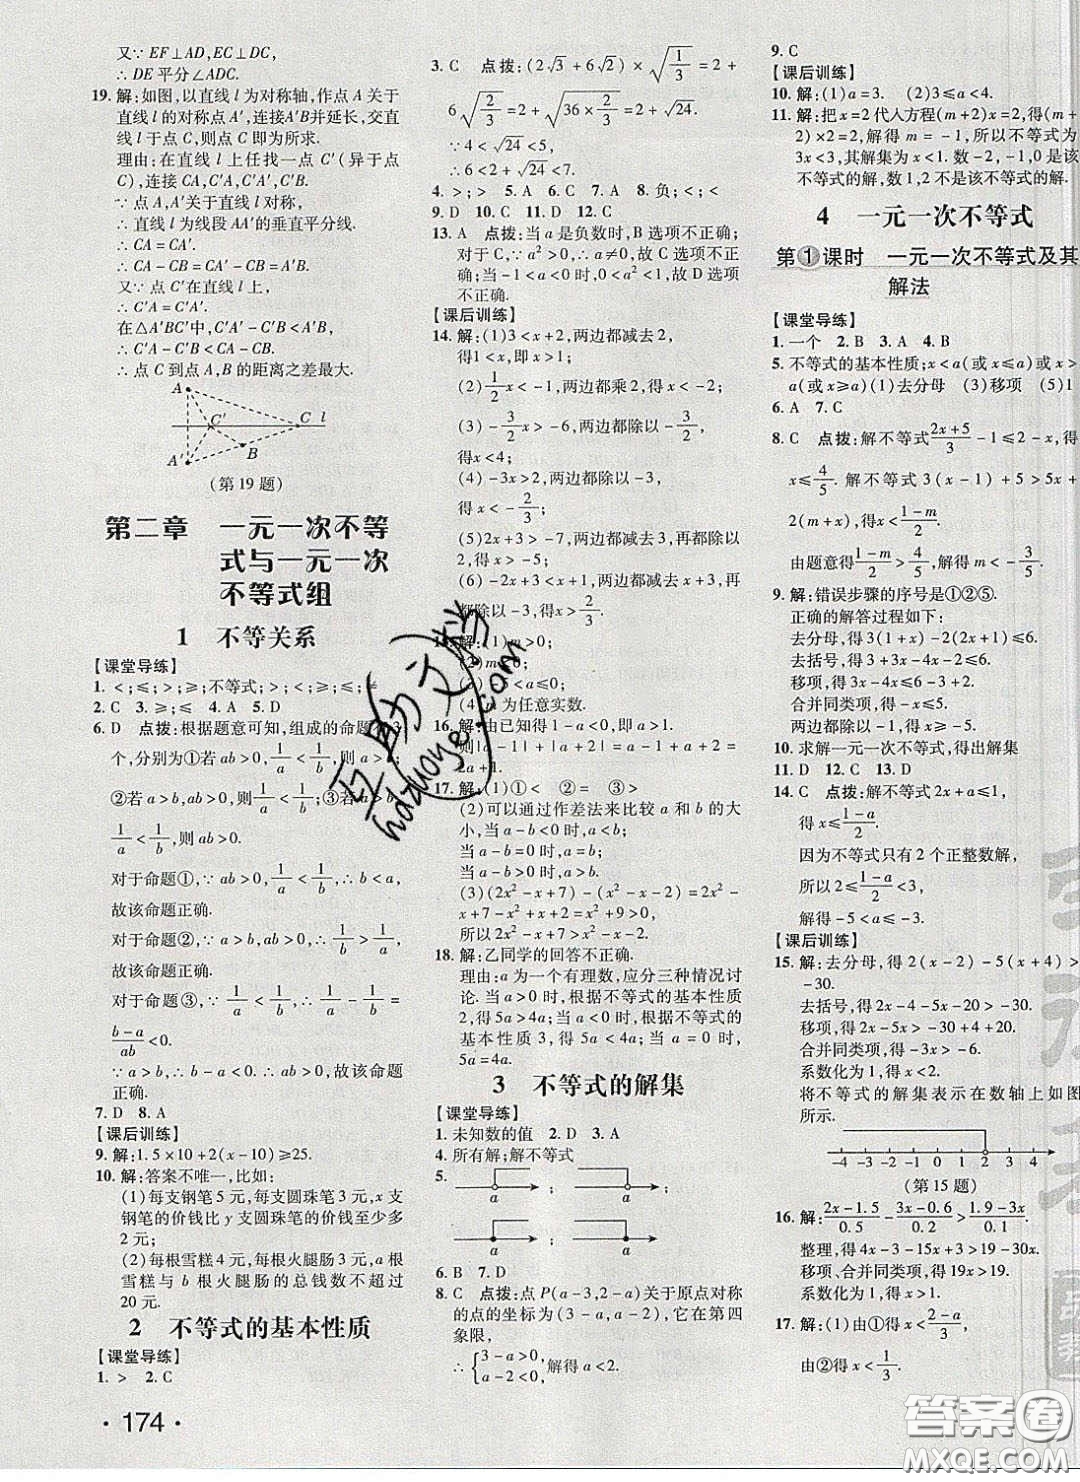 又∵EF⊥AD,EC⊥DC,
∴DE平分∠ADC.
19. 解:如图,以直线 l 为对称轴,作点 A 关于
直线 l 的对称点 A′,连接A′B并延长,交直
线 l 于点 C,则点 C 即为所求.
理由:在直线 l 上任找一点 C′(异于点
C),连接 CA,C′A,C′A′,C′B.
∵点 A,A′关于直线 l 对称,
∴直线 l 为线段 AA′的垂直平分线.
∴CA=CA′.
∴CA-CB=CA′-CB=A′B.
又∵点 C′在直线 l 上,
∴C′A=C′A′.
在△A′BC′中,C′A-C′B=C′A′-C′B<A′B.
∴C′A-C′B<CA-CB.
∴点 C 到点 A,B 的距离之差最大.
A
C′ C l
A′ B
(第 19 题)
第二章 一元一次不等
式与一元一次
不等式组
1 不等关系
【课堂导练】
1. <;≤;>;≥;不等式;>;<;≥;≤;≠
2. C 3. ≥;≤ 4. A 5. D
6. D 点拨:根据题意可知,组成的命题有3
个,分别为①若 ab>0, 1/a<1/b,则 a>b;
②若 a>b,ab>0,则1/a<1/b;③若 a>b,
1/a<1/b,则 ab>0.
对于命题①,∵ab>0,1/a<1/b,∴b<a,
故该命题正确.
对于命题②,∵a>b,ab>0,∴1/b>1/a,
故该命题正确.
对于命题③,∵1/a<1/b,∴1/a-1/b=
(b-a)/ab<0.
∵a>b,∴b-a<0,∴ab>0,故该命题正确.
7. D 8. A
【课后训练】
9. 解:1.5×10+2(x-10)≥25.
10. 解:答案不唯一,比如:
(1)每支钢笔 5 元,每支圆珠笔 3 元,x 支
钢笔的价钱比 y 支圆珠笔的价钱至少多
2 元;
(2)每根雪糕 4 元,每根火腿肠 3 元,a 根
雪糕与 b 根火腿肠的总钱数不超过
20 元.
2 不等式的基本性质
【课堂导练】
1. > 2. C
· 174 ·
3. C 点拨:(2√3+6√2)×√(1/3)=2+
6√(2/3)=2+√(36×2/3)=2+√24.
∵4<√24<5,
∴6<2+√24<7.
4. >;> 5. A 6. C 7. A 8. 负;<;<
9. D 10. C 11. D 12. C
13. A 点拨:当 a 是负数时,B 选项不正确;
对于 C,∵b>0,∴a<0,故 C 选项不正
确;当-1<a<0 时,a²<-a,故 D 选项
不正确.
【课后训练】
14. 解:(1)3<x+2,两边都减去 2,
得1<x,即 x>1;
(2)1/2 x<-1,两边都乘 2,得 x<-2;
(3)-3/2 x>-6,两边都除以-3/2,
得x<4;
(4)-3x>2,两边都除以-3,
得 x<-2/3;
(5)2x>-10,两边都除以
2,得 x>-5;
(6)-2x+3<-3x,两边都减去 3,再
都除以-3,得x>2/3.
15. 解:(1)m>0;
(2)m<0;
(3)-1<a≤0;
为任意实数.
16. 解:由已知得 1-a<0,即 a>1.
则|a-1|+|a+2|=a-1+a+2=
2a+1.
17. 解:(1)①< ②= ③>
(2)可以通过作差法来比较 a 和 b 的大
小,当 a-b<0 时,a<b;
当 a-b=0 时,a=b;
当 a-b>0 时,a>b.
(3)(2x²-x+7)-(x²-x-2)=2x²-
x+7-x²+x+2=x²+9>0,
所以 2x²-x+7>x²-x-2.
18. 解:乙同学的回答不正确.
理由:a 为一个有理数,应分三种情况讨
论.当 a>0 时,根据不等式的基本性质
2,得 5a>4a;当 a<0 时,根据不等式的
基本性质 3,得 5a<4a;当 a=0 时,
5a=4a.
3 不等式的解集
【课堂导练】
1. 未知数的值 2. D 3. A
4. 所有解;解不等式
5.
a ; a ;
a ; a
6. B 7. D
8. C 点拨:点 P(a-3,2-a)关于原点对称
的点的坐标为(3-a,a-2),它在第四
象限,
∴{3-a>0, a-2<0, 解得 a<2.
9. C
【课后训练】
10. 解:(1)a=3. (2)3≤a<4.
11. 解:把x=2代入方程(m+2)x=2,得(m+
2)×2=2,解得 m=-1,所以不等式为
3x<3,其解集为 x<1.数-2,-1,0是该
不等式的解,数1,2 不是该不等式的解.
4 一元一次不等式
第①课时 一元一次不等式及其
解法
【课堂导练】
1. 一个 2. B 3. A 4. B
5. 不等式的基本性质;x<a(或 x≤a)或 x>
a(或 x≥a)(1)去分母 (3)移项 (5)1
6. A 7. C
8. C 点拨:解不等式(2x+5)/3-1≤2-x,得
x≤4/5.解不等式 3(x-1)+5>5x+
2(m+x),得x<(1-m)/2.
由题意得(1-m)/2>4/5,解得 m<-3/5.
9. 解:错误步骤的序号是①②⑤.
正确的解答过程如下:
去分母,得 3(1+x)-2(2x+1)≤6.
去括号,得 3+3x-4x-2≤6.
移项,得 3x-4x≤6-3+2.
合并同类项,得-x≤5.
两边都除以-1,得 x≥-5.
10. 求解一元一次不等式,得出解集
11. D 12. C 13. D
14. C 点拨:解不等式 2x+a≤1,
得 x≤(1-a)/2.
因为不等式只有 2 个正整数解,
所以 2≤(1-a)/2<3,
解得-5<a≤-3.
【课后训练】
15. 解:去分母,得 2(x-2)-5(x+4)>
-30.
去括号,得 2x-4-5x-20>-30.
移项,得 2x-5x>-30+4+20.
合并同类项,得-3x>-6.
系数化为 1,得 x<2.
将不等式的解集表示在数轴上如图
所示.
-4 -3 -2 -1 0 1 2 3 4
(第 15 题)
16. 解:(2x-1.5)/0.5-(3x-0.6)/0.2>(1.9-3x)/0.1.
整理,得 4x-3-15x+3>19-30x.
移项、合并同类项,得 19x>19.
系数化为 1,得 x>1.
17. 解:(1)由①得 x<(2-a)/3,
由②得 x<1/3.
互助文档
hdzuoye.com
答案圈
MXQE.COM